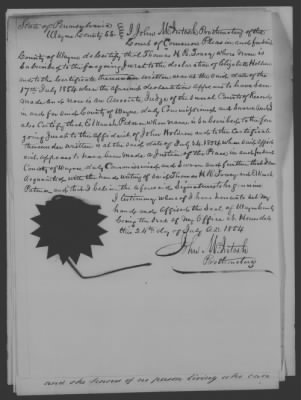 State of Pennsylvania
Wayne County SS I John McIntosh Prothonotary of the
Court of Common Pleas in and for said
County of Wayne do certify that Thomas H. R. Tracy whose name is
subscribed to the foregoing Jurat to the declaration of Elizabeth Holdren
and to the Certificate thereunder written was at the said date of the
17th July 1854 when the aforesaid declaration appears to have been
made and now is an Associate Judge of the said Court of County
in and for said County of Wayne, duly Commissioned and sworn and I
also Certify that Elihu Peter whose name is subscribed to the fore
going Jurat to the affidavit of John Holdren and to the Certificate
thereunder written was at the said date of July 24, 1854 when said affid
avit appears to have been made a Justice of the Peace in and for said
County of Wayne duly Commissioned and sworn and further that I am
acquainted with the hand writing of said Thomas H. R. Tracy and
and that I believe the aforesaid Signatures to be genuine
In testimony whereof I have hereunto set my
hand and Affixed the Seal of Wayne County
being the Seal of my Office at Honesdale
this 24th day of July A.D. 1854
John McIntosh
Prothonotary
and she knows of no person living who can